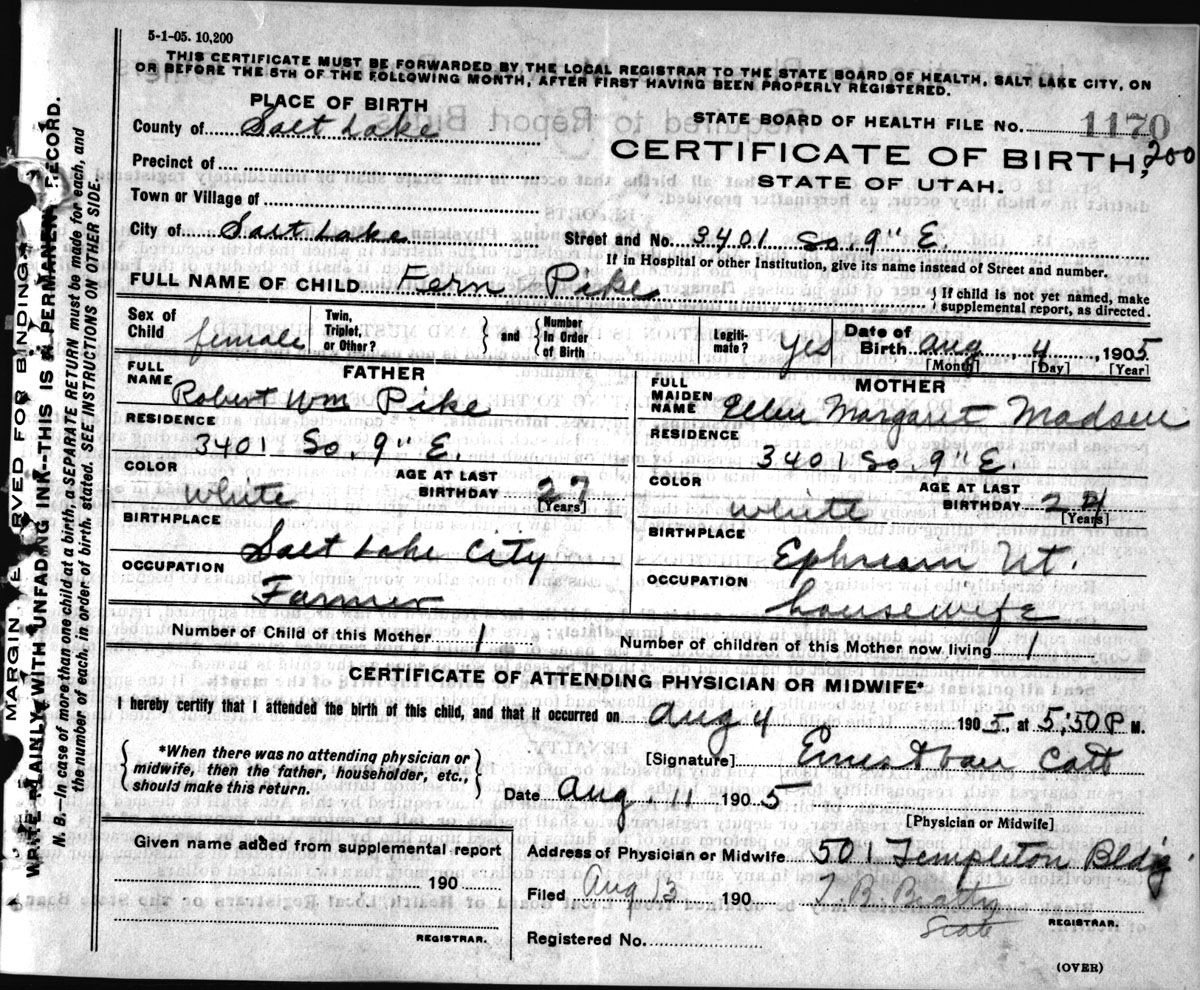 5-1-05. 10,200
THIS CERTIFICATE MUST BE FORWARDED BY THE LOCAL REGISTRAR TO THE STATE BOARD OF HEALTH, SALT LAKE CITY, ON
OR BEFORE THE 5TH OF THE FOLLOWING MONTH, AFTER FIRST HAVING BEEN PROPERLY REGISTERED.
PLACE OF BIRTH
County of Salt Lake
STATE BOARD OF HEALTH FILE No. 1170
200
CERTIFICATE OF BIRTH,
STATE OF UTAH.
Precinct of
Town or Village of
City of Salt Lake
Street and No. 3401 So. 9" E.
If in Hospital or other Institution, give its name instead of Street and number.
FULL NAME OF CHILD Fern Pike
} If child is not yet named, make
supplemental report, as directed.
Sex of
Child female
Twin,
Triplet,
or Other?
} and {
Number
In Order
of Birth
Legiti-
mate? yes
Date of
Birth Aug 4, 1905
[Month] [Day] [Year]
FATHER
FULL
NAME Robert Wm Pike
RESIDENCE
3401 So. 9" E.
COLOR
white
AGE AT LAST
BIRTHDAY 27
[Years]
BIRTHPLACE
Salt Lake City
OCCUPATION
Farmer
MOTHER
FULL
MAIDEN
NAME Ellen Margaret Madsen
RESIDENCE
3401 So. 9" E.
COLOR
white
AGE AT LAST
BIRTHDAY 24
[Years]
BIRTHPLACE
Ephriam Ut.
OCCUPATION
housewife
Number of Child of this Mother 1
Number of children of this Mother now living 1
CERTIFICATE OF ATTENDING PHYSICIAN OR MIDWIFE*
I hereby certify that I attended the birth of this child, and that it occurred on Aug 4 1905, at 5:50 P M.
*When there was no attending physician or
midwife, then the father, householder, etc.,
should make this return.
[Signature] Ernest van Cott
Date Aug 11 1905
[Physician or Midwife]
Given name added from supplemental report
190
REGISTRAR.
Address of Physician or Midwife 501 Templeton Bldg.
Filed Aug 13 190 T B Beatty
State
REGISTRAR.
Registered No.
(OVER)
MARGIN RESERVED FOR BINDING
WRITE PLAINLY WITH UNFADING INK--THIS IS A PERMANENT RECORD.
N. B.--In case of more than one child at a birth, a SEPARATE RETURN must be made for each, and
the number of each, in order of birth, stated. SEE INSTRUCTIONS ON OTHER SIDE.